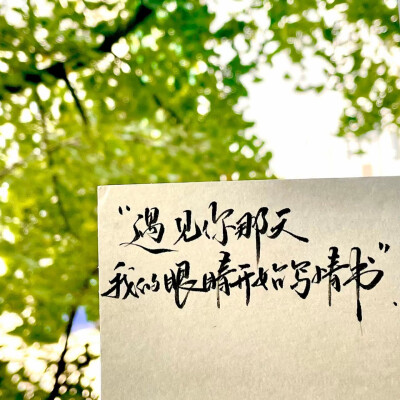 “遇见你那天
我的眼睛开始写情书”.